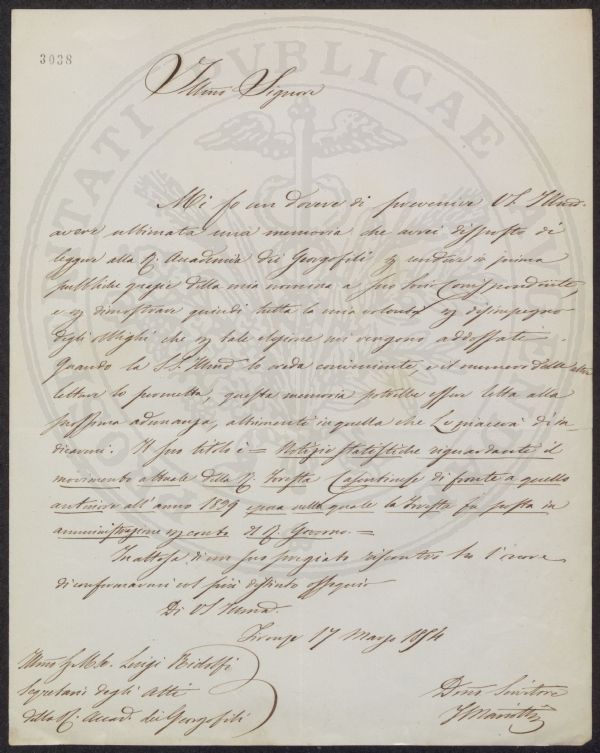 3038
Illmo Signore
Mi fo un dovere di prevenire V.S. Illma
avere ultimata una memoria che avrei disposto di
leggere alla R. Accademia dei Georgofili p. rendere in prima
pubbliche grazie della mia nomina a suo Socio Corrispondente,
e p. dimostrare quindi tutta la mia volontà p. disimpegno
degli obblighi che p. tale elezione mi vengono addossati.
Quando la S.V. Illma lo creda conveniente, e il numero delle altre
letture lo permetta, questa memoria potrebbe esser letta alla
prossima adunanza, altrimenti in quella che Le piacerà d'in
dicarmi. Il suo titolo è = Notizie statistiche riguardante il
movimento attuale della R. Foresta Casentinese di fronte a quello
anteriore all'anno 18 epoca nella quale la Foresta fu posta in
amministrazione p. conto del R. Governo. =
In attesa di un suo pregiato riscontro ho l'onore
di confermarmi col più distinto ossequio
Di V.S. Illma
Firenze 17 Marzo 1854
Illmo Luigi Ridolfi
Segretario degli Atti
della R. Accad. dei Georgofili
Devmo Servitore
PROSPERITATI PUBLICAE AUGENDAE